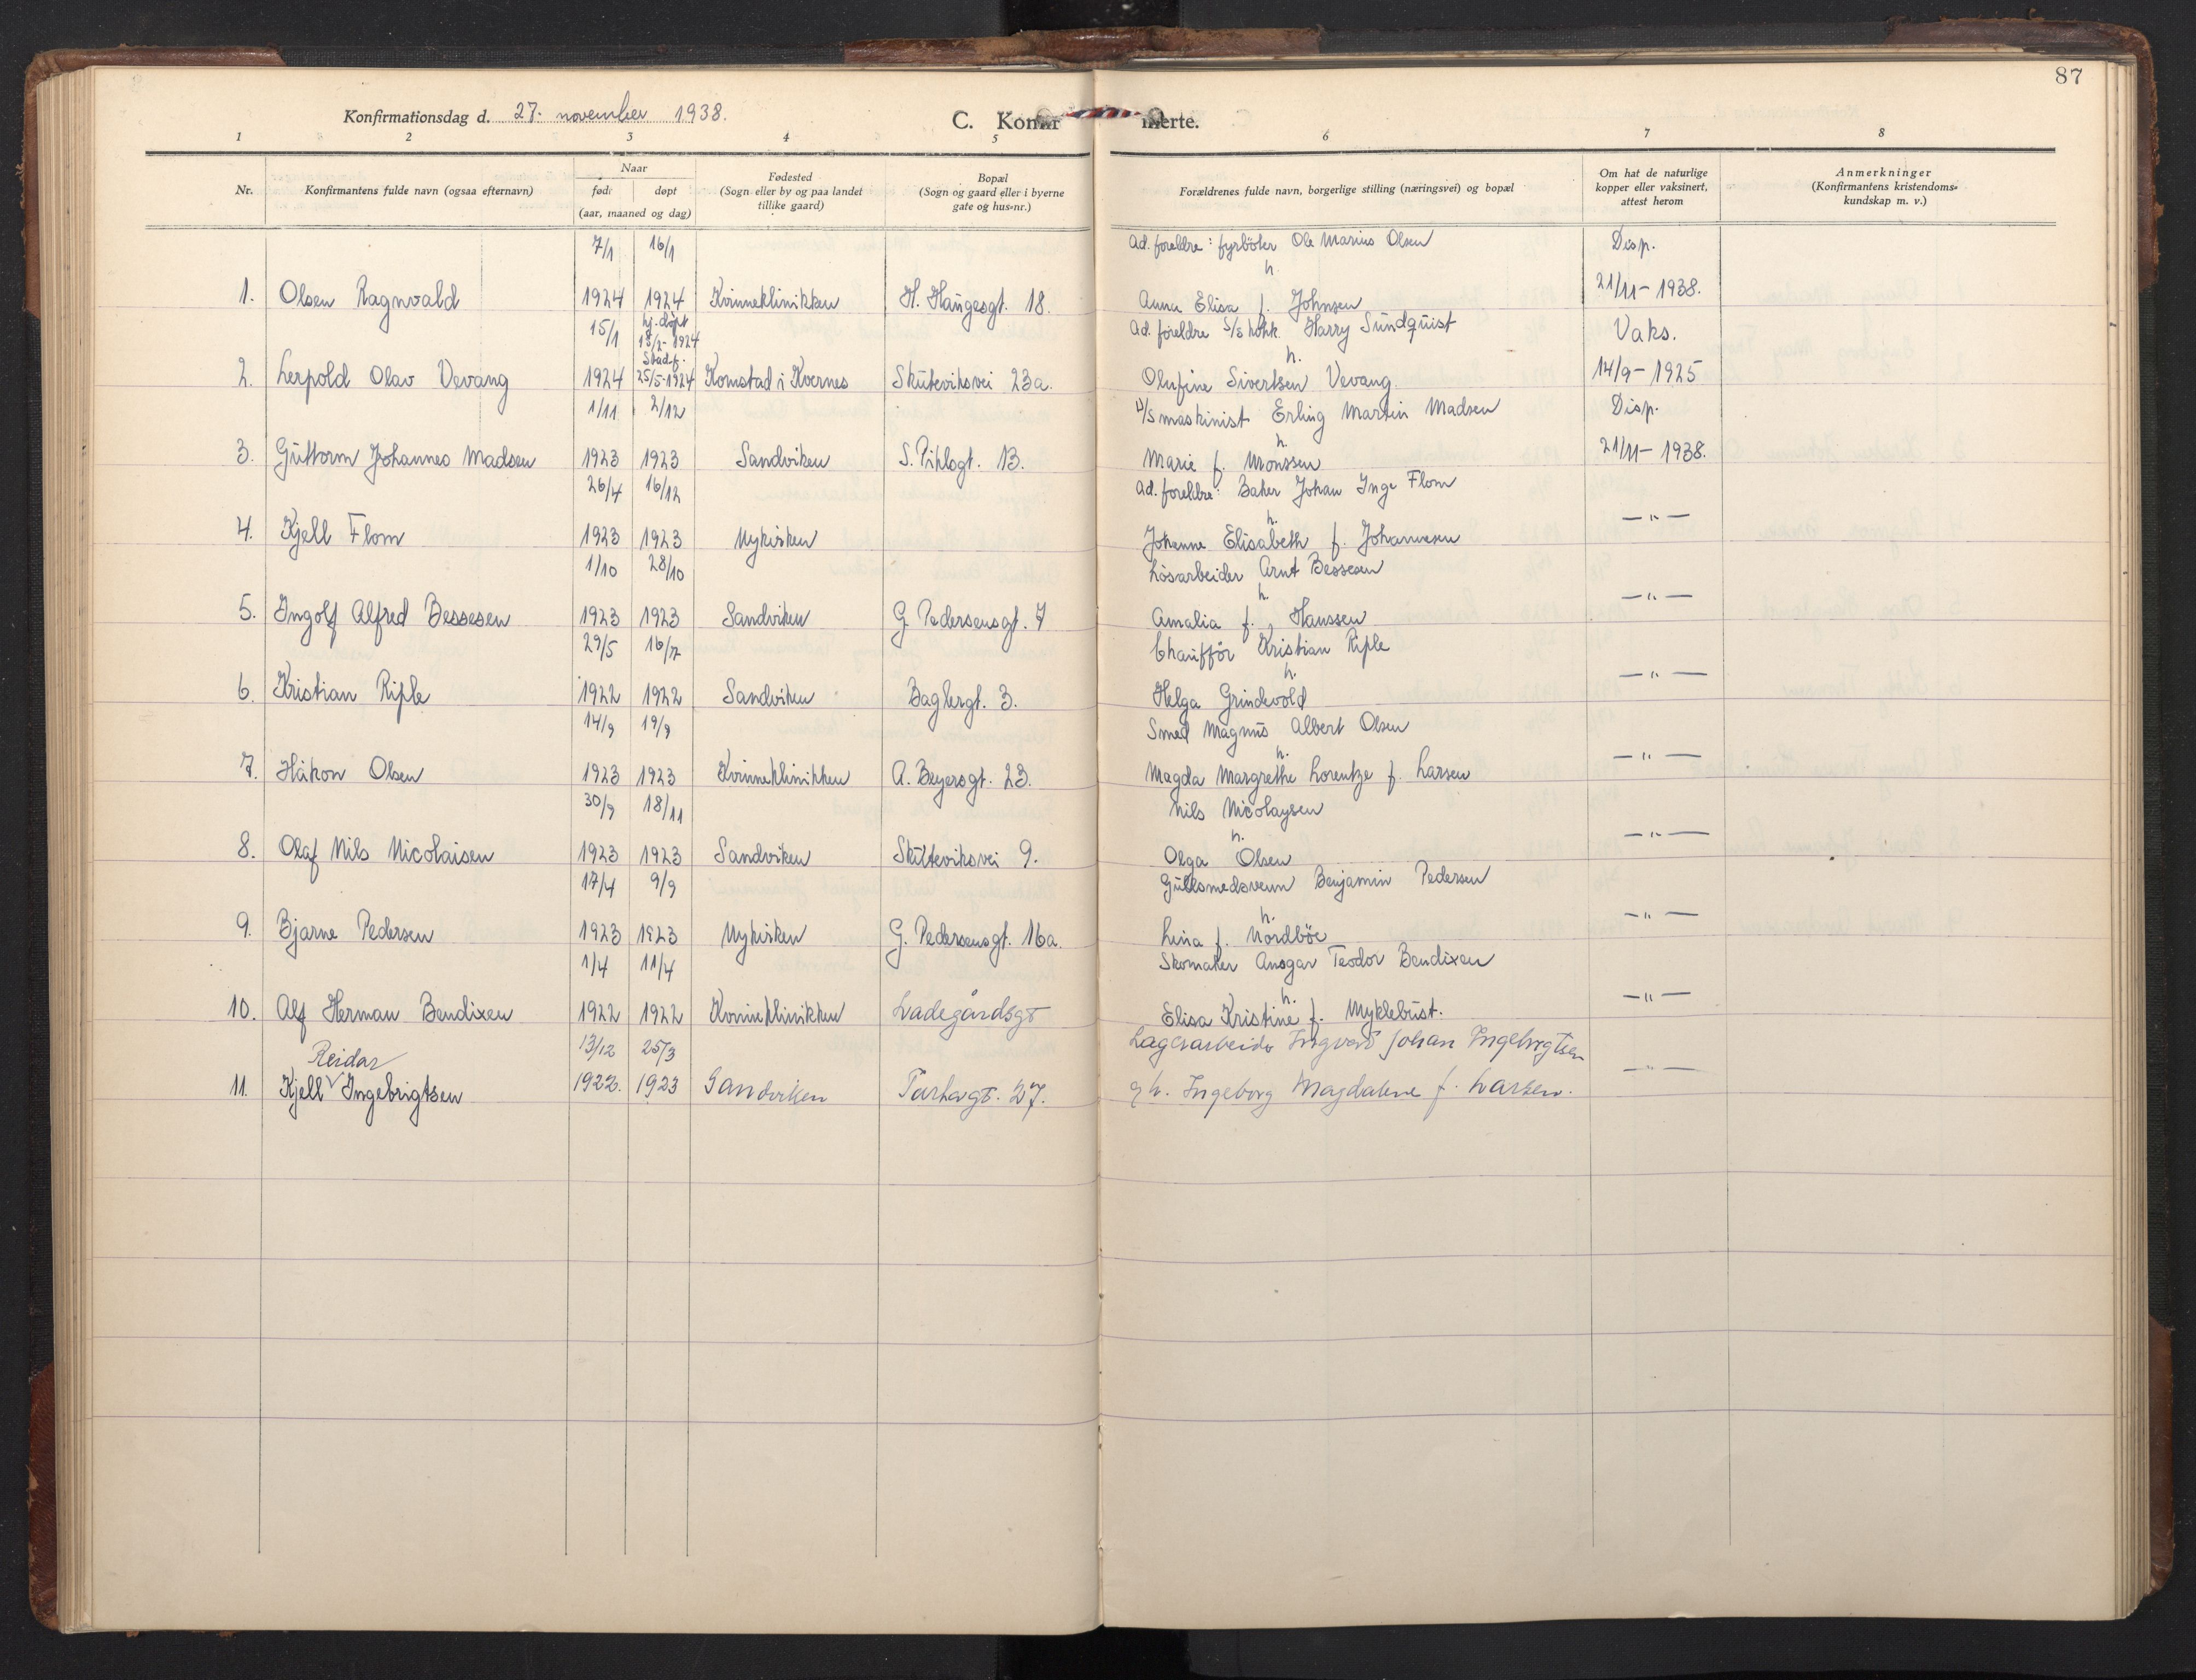 87
Konfirmationsdag d. 27. november 1938.
C. Konfirmerte.
1 2 3 4 5 6 7 8
Nr.
Konfirmantens fulde navn (ogsaa efternavn)
Naar
født døpt
(aar, maaned og dag)
Fødested
(Sogn eller by og paa landet
tillike gaard)
Bopæl
(Sogn og gaard eller i byerne
gate og hus-nr.)
Forældrenes fulde navn, borgerlige stilling (næringsvei) og bopæl
Om hat de naturlige
kopper eller vaksinert,
attest herom
Anmerkninger
(Konfirmantens kristendoms-
kundskap m. v.)
7/1 16/1 Ad. foreldre: fyrböter Ole Marius Olsen Disp.
h.
1. Olsen Ragnvald 1924 1924 Kvinneklinikken H. Haugesgt. 18. Anna Elisa f. Johnsen 21/11-1938.
15/1 hj. döpt 18/2-1924 Ad. foreldre S/S kokk Harry Sundquist Vaks.
Stadf. h.
2. Leopold Olav Vevang 1924 25/5-1924 Komstad i Kvernes Skuteviksvei 23a. Olufine Sivertsen Vevang. 14/9-1925
1/11 2/12 D/S maskinist Erling Martin Madsen Disp.
h.
3. Guttorm Johannes Madsen 1923 1923 Sandviken S. Piplsgt. 13. Marie f. Monssen 21/11-1938.
26/4 16/12 Ad. foreldre: Baker Johan Inge Flom
h.
4. Kjell Flom 1923 1923 Nykirken Johanne Elisabeth f. Johannesen —"—
1/10 28/10 Lösarbeider Arnt Bessesen
h.
5. Ingolf Alfred Bessesen 1923 1923 Sandviken G. Pedersensgt. 7 Amalia f. Hanssen —"—
29/5 16/7 Chaufför Kristian Riple
h.
6. Kristian Riple 1922 1922 Sandviken Baglergt. 3. Helga Grindevold —"—
14/9 19/9 Smed Magnus Albert Olsen
h.
7. Håkon Olsen 1923 1923 Kvinneklinikken A. Beyersgt. 23. Magda Margrethe Lorentze f. Larsen —"—
30/9 18/11 Nils Nicolaysen
h.
8. Olaf Nils Nicolaisen 1923 1923 Sandviken Skuteviksvei 9. Olga Olsen —"—
17/4 9/9 Gullsmedsvenn Benjamin Pedersen
h.
9. Bjarne Pedersen 1923 1923 Nykirken G. Pedersensgt. 16a. Lina f. Nordböe —"—
1/4 11/4 Skomaker Ansgar Teodor Bendixen
h.
10. Alf Herman Bendixen 1922 1922 Kvinneklinikken Ladegårdsgt Elisa Kristine f. Myklebust. —"—
Reidar 13/12 25/3 Lagerarbeider Ingvard Johan Ingebrigtsen
11. Kjell Ingebrigtsen 1922. 1923 Sandviken 27. g h. Ingeborg Magdalene f. Larsen. —"—